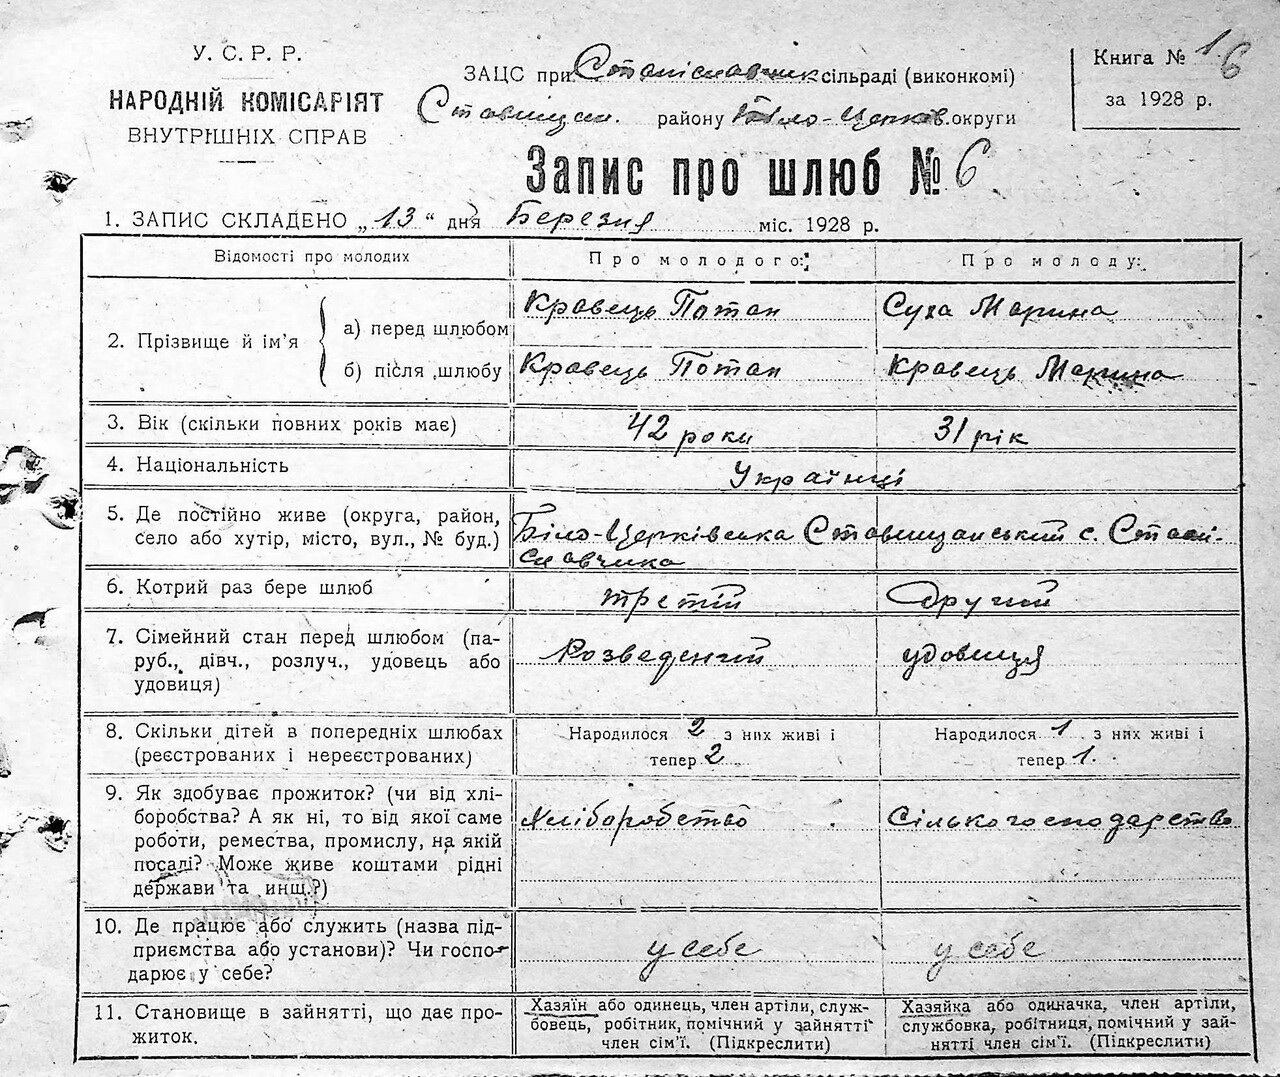 У. С. Р. Р.
НАРОДНІЙ КОМІСАРІЯТ
ВНУТРІШНІХ СПРАВ
ЗАЦС при Станіславчик сільраді (виконкомі)
Ставищан. району Біло-Церків. округи
Книга № 1 6
за 1928 р.
Запис про шлюб № 6
1. ЗАПИС СКЛАДЕНО „13“ дня Березня міс. 1928 р.
Відомості про молодих
Про молодого:
Про молоду:
2. Прізвище й ім’я
а) перед шлюбом
Кравець Потап
Суха Марина
б) після шлюбу
Кравець Потап
Кравець Марина
3. Вік (скільки повних років має)
42 роки
31 рік
4. Національність
Українці
5. Де постійно живе (округа, район,
село або хутір, місто, вул., № буд.)
Біло-Церківська Ставищанський с. Стані-
славчика
6. Котрий раз бере шлюб
третій
Другий
7. Сімейний стан перед шлюбом (па-
руб., дівч., розлуч., удовець або
удовиця)
Розведений
удовиця
8. Скільки дітей в попередніх шлюбах
(реєстрованих і нереєстрованих)
Народилося 2 з них живі і
тепер 2
Народилося 1 з них живі і
тепер 1.
9. Як здобуває прожиток? (чи від хлі-
боробства? А як ні, то від якої саме
роботи, ремества, промислу, на якій
посаді? Може живе коштами рідні
держави та инщ.?)
Хліборобство
Сількогосподарство
10. Де працює або служить (назва під-
приємства або установи)? Чи госпо-
дарює у себе?
у себе
у себе
11. Становище в зайнятті, що дає про-
житок.
Хазяїн або одинець, член артіли, служ-
бовець, робітник, помічний у зайнятті
член сім’ї. (Підкреслити)
Хазяйка або одиначка, член артіли,
службовка, робітниця, помічний у зай-
нятті член сім’ї. (Підкреслити)